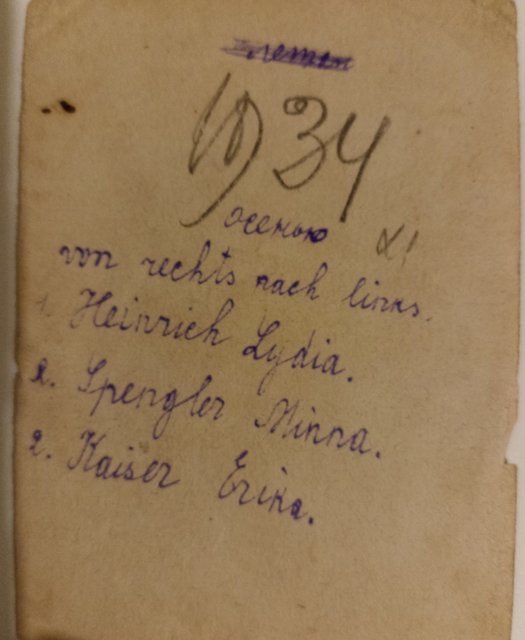 1934
осенью
von rechts nach links.
1. Heinrich Lydia.
2. Spengler Minna.
2. Kaiser Erika.